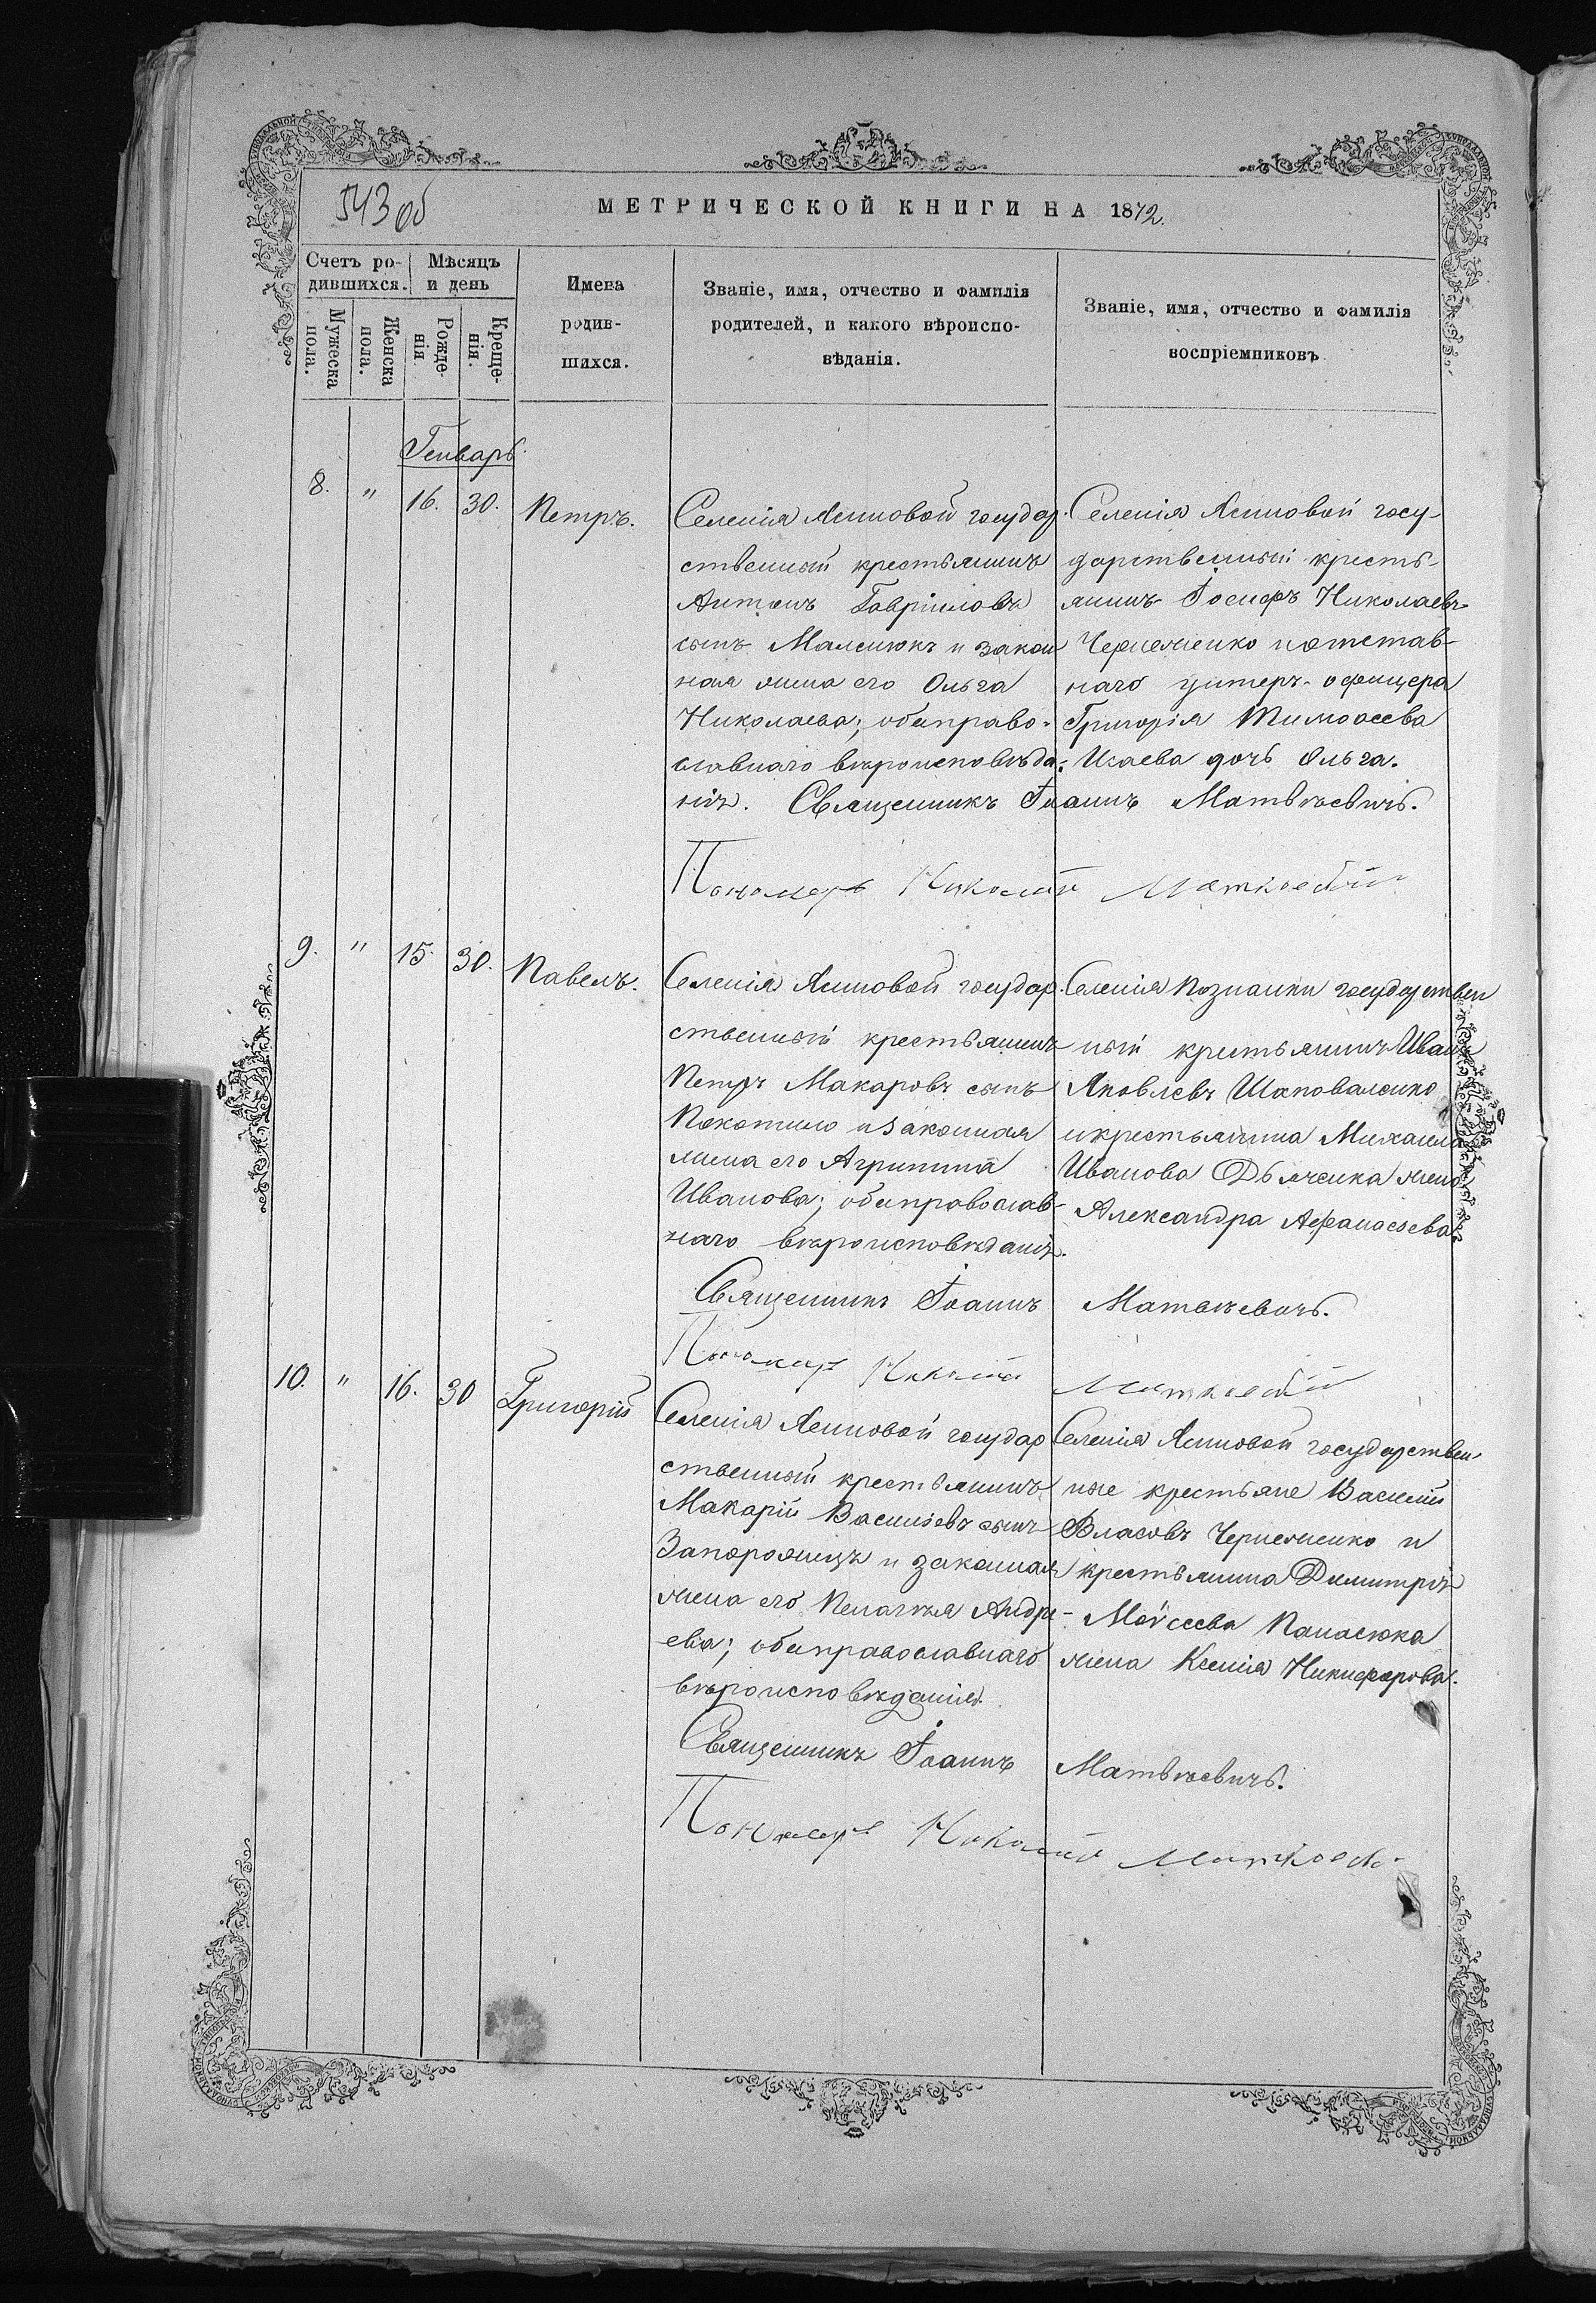 543 об
МЕТРИЧЕСКОЙ КНИГИ НА 1872.
Счетъ ро-
дившихся.
Мужеска
пола.
Женска
пола.
Мѣсяцъ
и день
Рожде-
нія.
Креще-
нія.
Имена
родив-
шихся.
Званіе, имя, отчество и фамилія
родителей, и какого вѣроиспо-
вѣданія.
Званіе, имя, отчество и фамилія
воспріемниковъ
Генварь.
8. " 16. 30. Петръ.
Селенія Ясиновой государ-
ственный крестьянинъ
Антонъ Гавріиловъ
сынъ Маленюкъ и закон
ная жена его Ольга
Николаева; оба право-
славнаго вѣроисповѣда-
нія. Священникъ Іоаннъ Матвѣевичъ.
Селенія Ясиновой госу-
дарственный кресть-
янинъ Іосифъ Николаевъ
Чернеженко и отстав-
наго унтеръ-офицера
Григорія Тимоѳеева
Исаева дочь Ольга.
Пономарь Николай
9. " 15. 30. Павелъ.
Селенія Ясиновой государ-
ственный крестьянинъ
Петръ Макаровъ сынъ
Покотило и законная
жена его Агрипина
Иванова; оба православ-
наго вѣроисповѣданія.
Селенія Познанки государствен
ный крестьянинъ Иванъ
Яковлевъ Шаповаленко
и крестьянина Михаила
Иванова Дьяченка жена
Александра Афанасьева
Священникъ Іоаннъ Матвѣевичъ.
Пономарь Николай
10. " 16. 30 Григорій
Селенія Ясиновой государ
ственный крестьянинъ
Макарій Васильевъ сынъ
Запорожецъ и законная
жена его Пелагѣя Андре-
ева; оба православнаго
вѣроисповѣданія.
Селенія Ясиновой государствен-
ные крестьяне Василій
Власовъ Чернеженко и
крестьянина Димитрія
Моѵсеева Панасюка
жена Ксенія Никифорова.
Священникъ Іоаннъ Матвѣевичъ.
Пономарь Николай